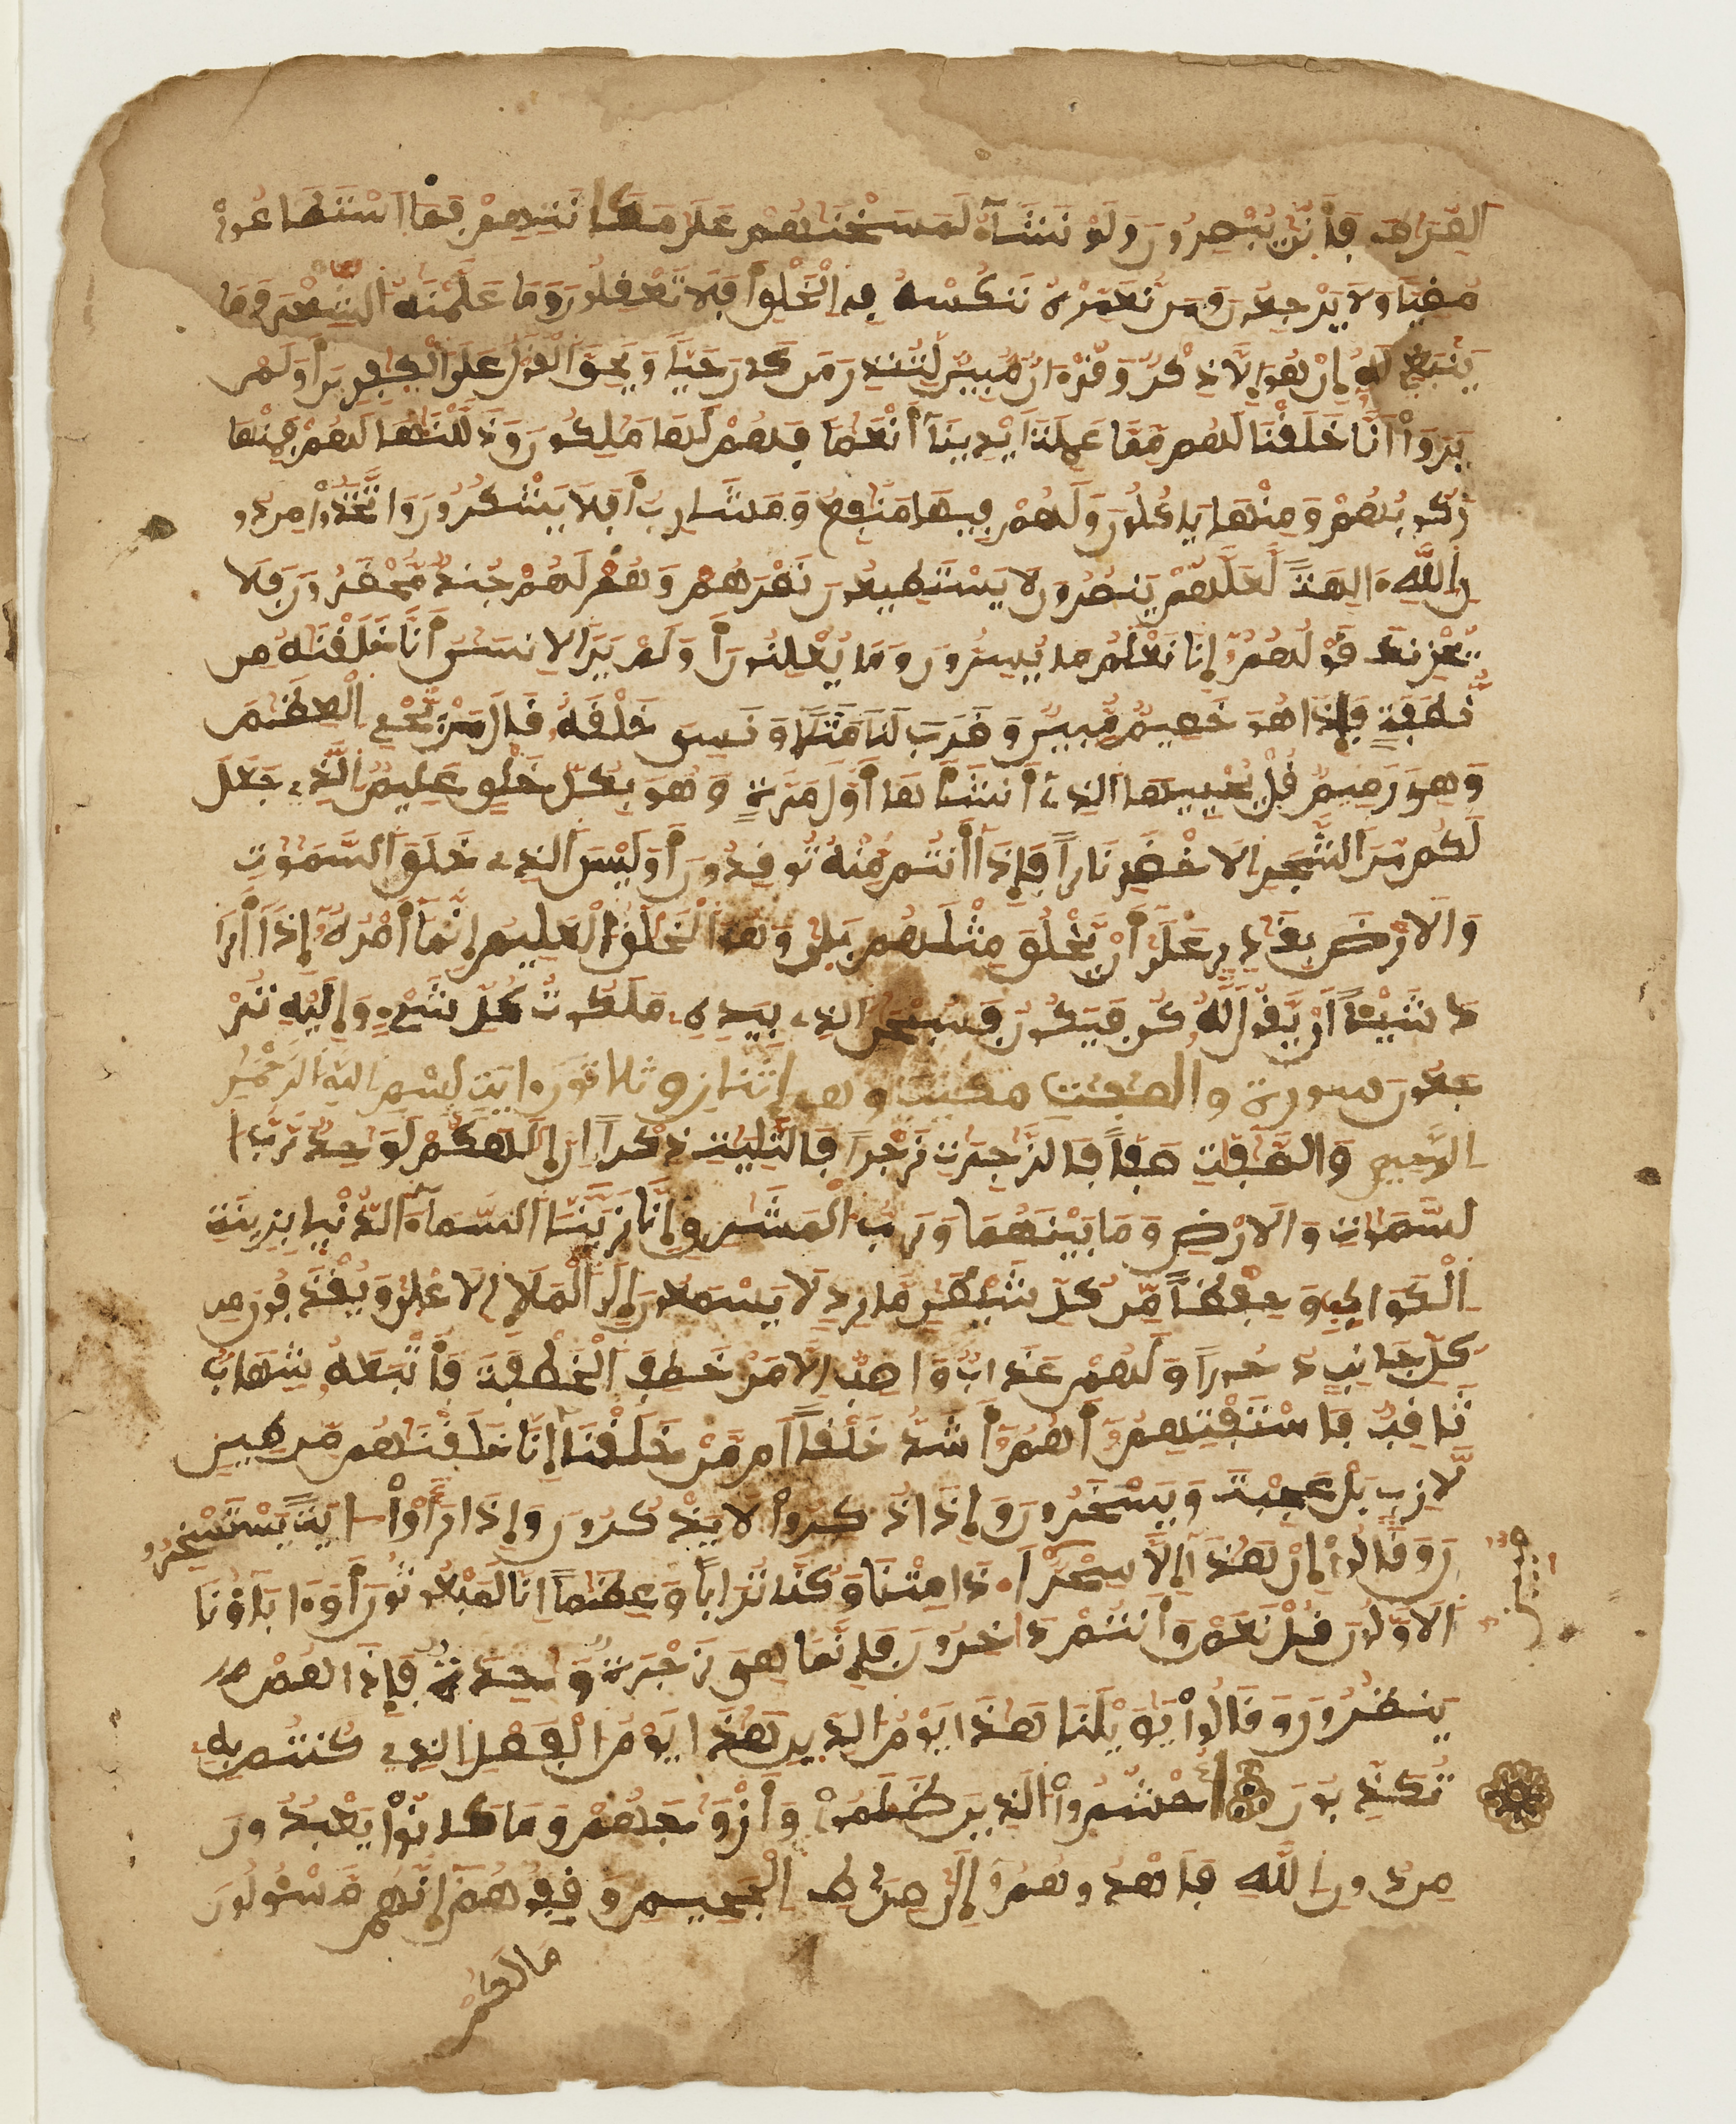 الصّرٰط فأنّىٰ يبصرون ولو نشآء لمسخنٰهم علىٰ مكانتهم فما استطٰعوا
مضيا ولا يرجعون ومن نعمره ننكسه في الخلق أفلا تعقلون وما علمنٰه الشعر وما
ينبغي له إن هو إلا ذكر وقرءان مبين لتنذر من كان حيا ويحق القول علىٰ الكٰفرين أولم
يروا أنا خلقنا لهم مما عملت أيدينا أنعٰما فهم لها مٰلكون وذللنٰها لهم فمنها
ركوبهم ومنها ياكلون ولهم فيها منٰفع ومشارب أفلا يشكرون واتخذوا من دو
ن الله ءالهة لعلهم ينصرون لا يستطيعون نصرهم وهم لهم جند محضرون فلا
يحزنك قولهم إنا نعلم ما يسرون وما يعلنون أولم ير الانسٰن أنا خلقنٰه من
نطفة فإذا هو خصيم مبين وضرب لنا مثلا ونسي خلقه قال من يحي العظٰم
وهي رميم قل يحييها الذي أنشأها أول مرة وهو بكل خلق عليم الذي جعل
لكم من الشجر الاخضر نارا فإذا أنتم منه توقدون أوليس الذي خلق السمٰوٰت
والارض بقٰدر علىٰ أن يخلق مثلهم بلىٰ وهو الخلٰق العليم إنما أمره إذا أرا
د شيئا أن يقول له كن فيكون فسبحٰن الذي بيده ملكوت كل شيء وإليه تر
جعون سورة والصٰفٰت مكية وهي اثنان وثلاثون ءاية بسم الله الرحمٰن
الرحيم والصٰفٰت صفا فالزٰجرٰت زجرا فالتٰليٰت ذكرا إن إلٰهكم لوٰحد رب ا
لسمٰوٰت والارض وما بينهما ورب المشٰرق إنا زينا السماء الدنيا بزينة
الكواكب وحفظا من كل شيطٰن مارد لا يسمعون إلى الملإ الاعلىٰ ويقذفون من
كل جانب دحورا ولهم عذاب واصب إلا من خطف الخطفة فأتبعه شهاب
ثاقب فاستفتهم أهم أشد خلقا أم من خلقنا إنا خلقنٰهم من طين
لازب بل عجبت ويسخرون وإذا ذكروا لا يذكرون وإذا رأوا ءاية يستسخرو
ن وقالوا إن هٰذا إلا سحر ا۟ذا متنا وكنا ترابا وعظٰما انا لمبعوثون أو ءاباؤنا
الاولون قل نعم وأنتم داخرون فإنما هي زجرة وٰحدة فإذا هم
ينظرون وقالوا يٰويلنا هٰذا يوم الدين هٰذا يوم الفصل الذي كنتم به
تكذبون احشروا الذين ظلموا وأزوٰجهم وما كانوا يعبدون
من دون الله فاهدوهم إلىٰ صرٰط الجحيم وقفوهم إنهم مسئولون
ما لكم